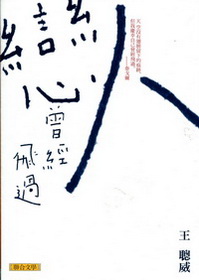 戀人
曾經
飛過
王聰威
聯合文學